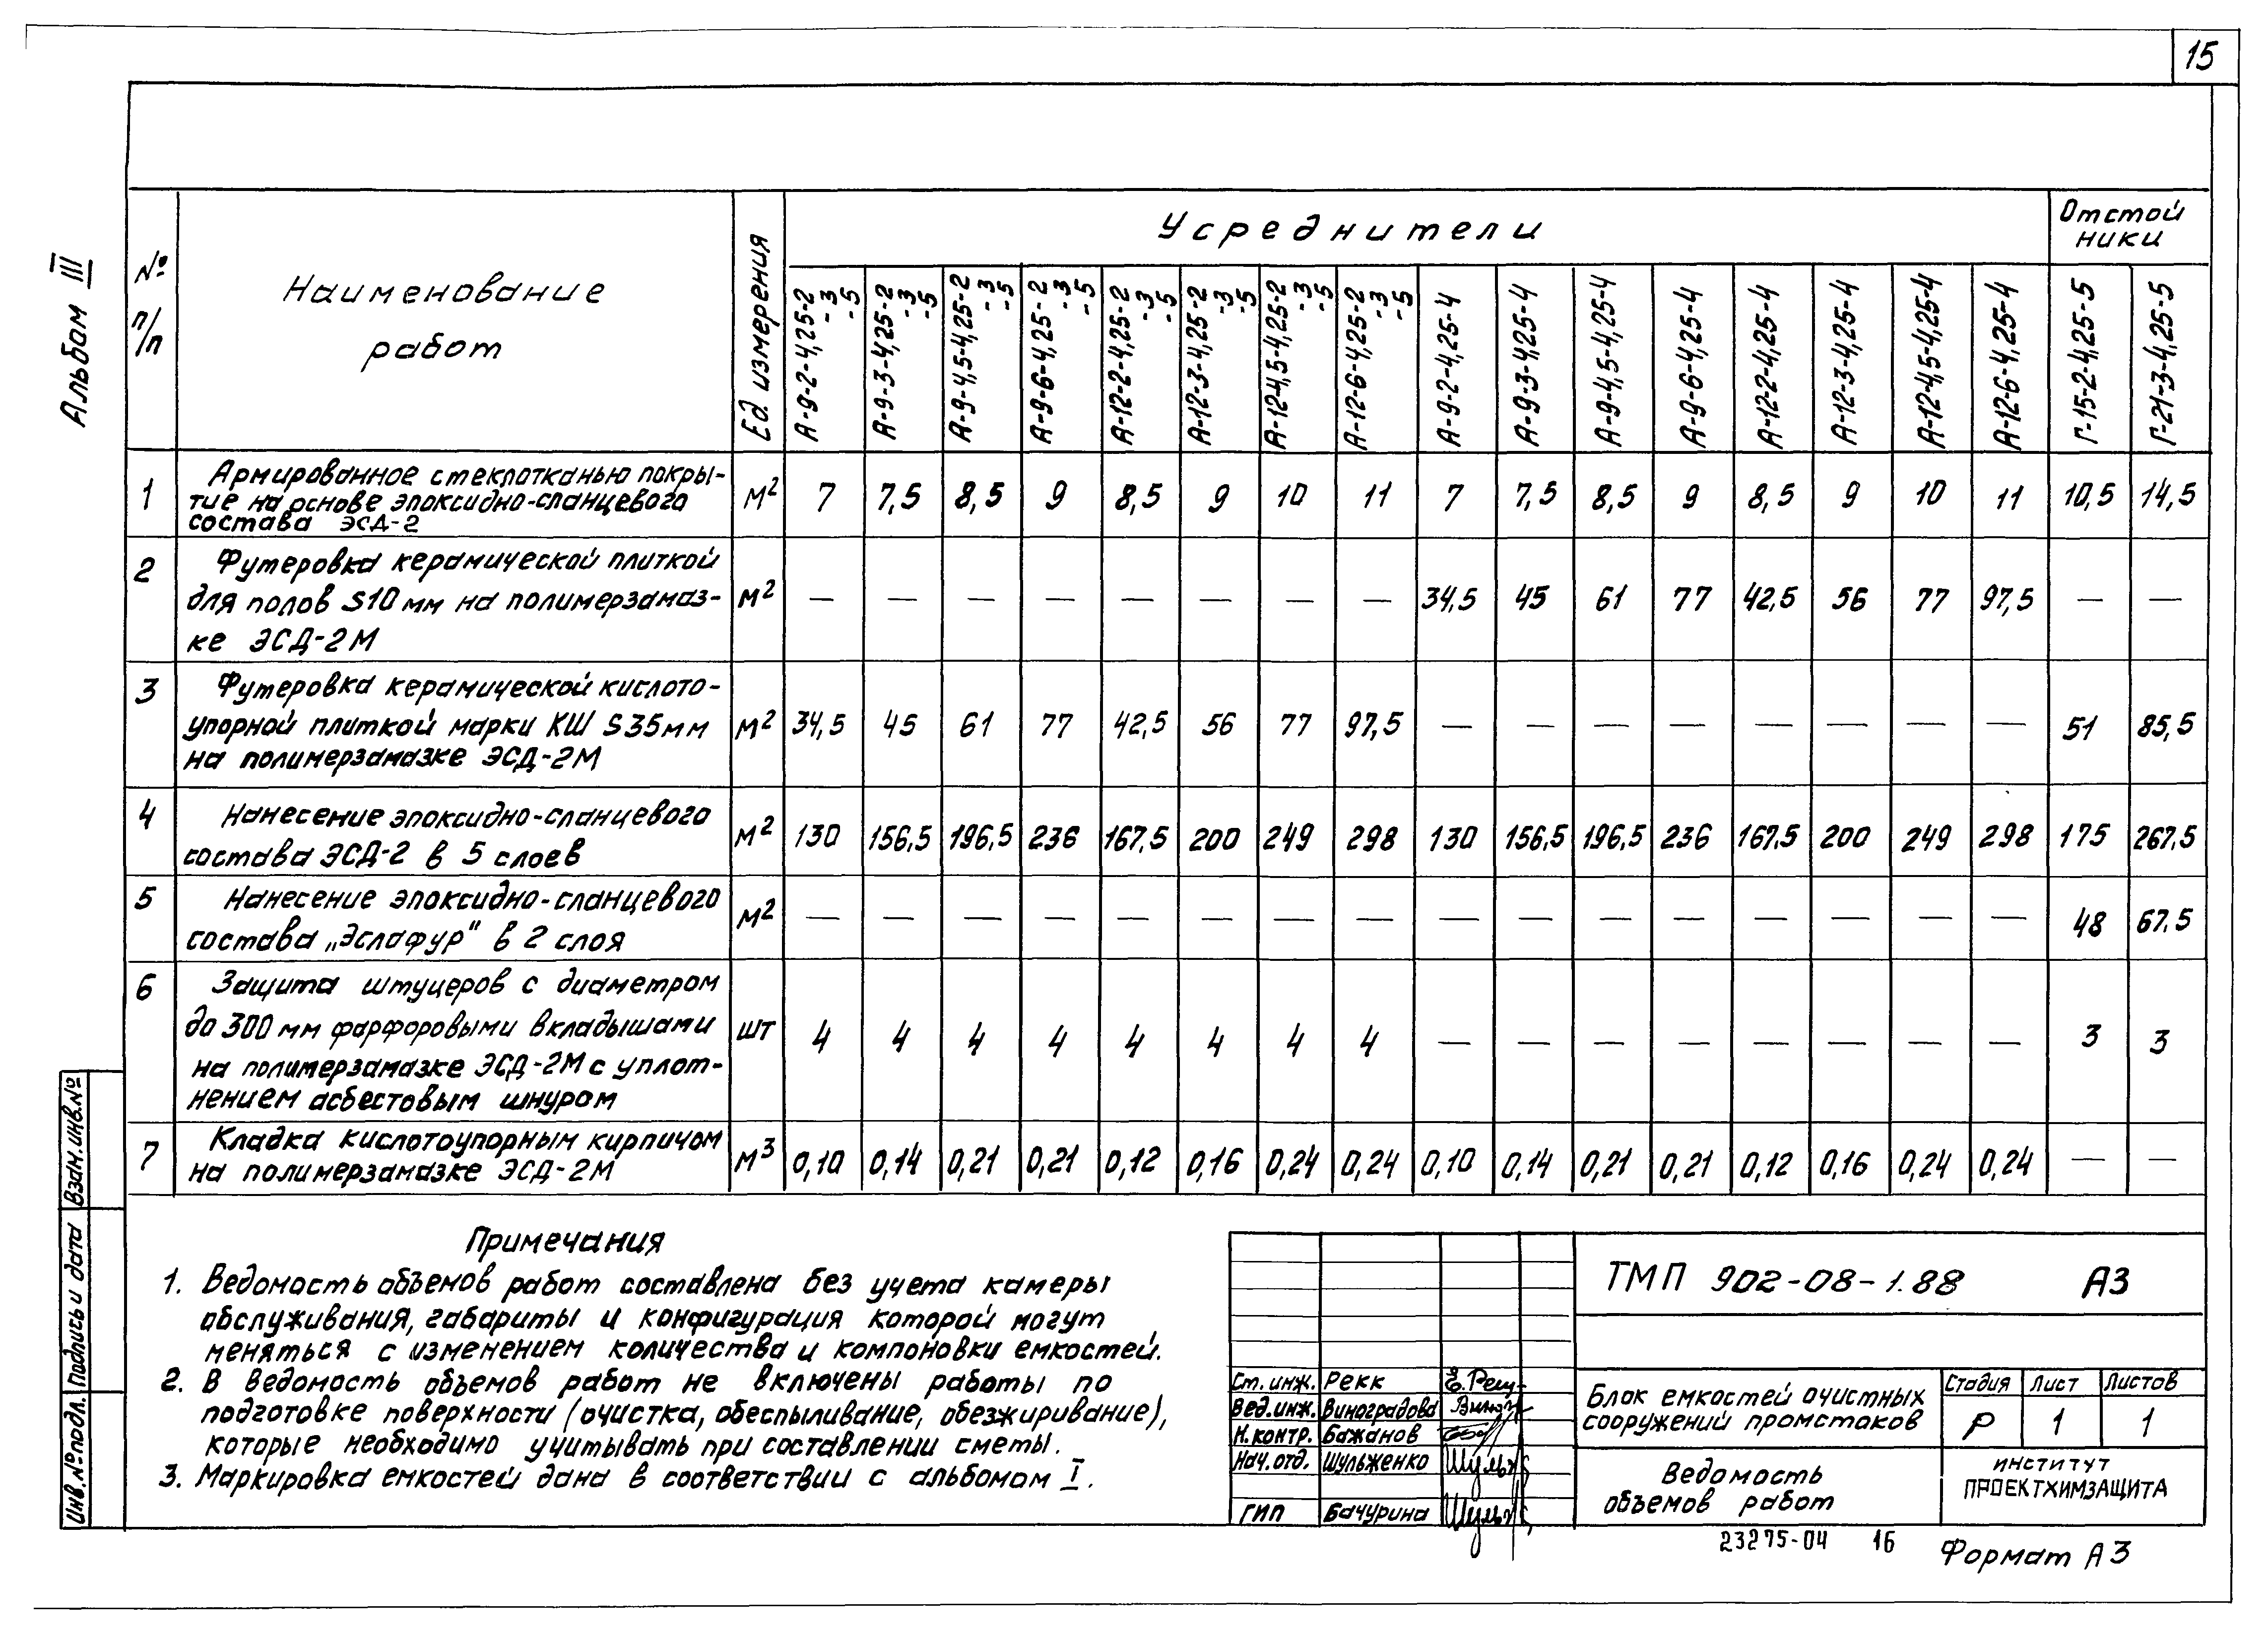 15
Альбом III
№ п/п
Наименование работ
Ед. измерения
Усреднители
Отстой
ники
А-9-2-4,25-2 -3 -5
А-9-3-4,25-2 -3 -5
А-9-4,5-4,25-2 -3 -5
А-9-6-4,25-2 -3 -5
А-12-2-4,25-2 -3 -5
А-12-3-4,25-2 -3 -5
А-12-4,5-4,25-2 -3 -5
А-12-6-4,25-2 -3 -5
А-9-2-4,25-4
А-9-3-4,25-4
А-9-4,5-4,25-4
А-9-6-4,25-4
А-12-2-4,25-4
А-12-3-4,25-4
А-12-4,5-4,25-4
А-12-6-4,25-4
Г-15-2-4,25-5
Г-21-3-4,25-5
1 Армированное стеклотканью покры-
тие на основе эпоксидно-сланцевого
состава ЭСД-2
м² 7 7,5 8,5 9 8,5 9 10 11 7 7,5 8,5 9 8,5 9 10 11 10,5 14,5
2 Футеровка керамической плиткой
для полов S10 мм на полимерзамаз-
ке ЭСД-2М
м² — — — — — — — — 34,5 45 61 77 42,5 56 77 97,5 — —
3 Футеровка керамической кислото-
упорной плиткой марки КШ S35мм
на полимерзамазке ЭСД-2М
м² 34,5 45 61 77 42,5 56 77 97,5 — — — — — — — — 51 85,5
4 Нанесение эпоксидно-сланцевого
состава ЭСД-2 в 5 слоев
м² 130 156,5 196,5 236 167,5 200 249 298 130 156,5 196,5 236 167,5 200 249 298 175 267,5
5 Нанесение эпоксидно-сланцевого
состава „Эслафур" в 2 слоя
м² — — — — — — — — — — — — — — — — 48 67,5
6 Защита штуцеров с диаметром
до 300 мм фарфоровыми вкладышами
на полимерзамазке ЭСД-2М с уплот-
нением асбестовым шнуром
шт 4 4 4 4 4 4 4 4 — — — — — — — — 3 3
7 Кладка кислотоупорным кирпичом
на полимерзамазке ЭСД-2М
м³ 0,10 0,14 0,21 0,21 0,12 0,16 0,24 0,24 0,10 0,14 0,21 0,21 0,12 0,16 0,24 0,24 — —
Примечания
1. Ведомость объемов работ составлена без учета камеры
обслуживания, габариты и конфигурация которой могут
меняться с изменением количества и компоновки емкостей.
2. В ведомость объемов работ не включены работы по
подготовке поверхности (очистка, обеспыливание, обезжиривание),
которые необходимо учитывать при составлении сметы.
3. Маркировка емкостей дана в соответствии с альбомом I.
Инв. № подл. Подпись и дата Взам. инв. №
ТМП 902-08-1.88 АЗ
Ст. инж. Рекк
Вед. инж. Виноградова
Н. контр. Бажанов
Нач. отд. Шульженко
ГИП Бачурина
Блок емкостей очистных
сооружений промстоков
Стадия Лист Листов
Р 1 1
Ведомость
объемов работ
ИНСТИТУТ
ПРОЕКТХИМЗАЩИТА
23275-04 16
Формат А3